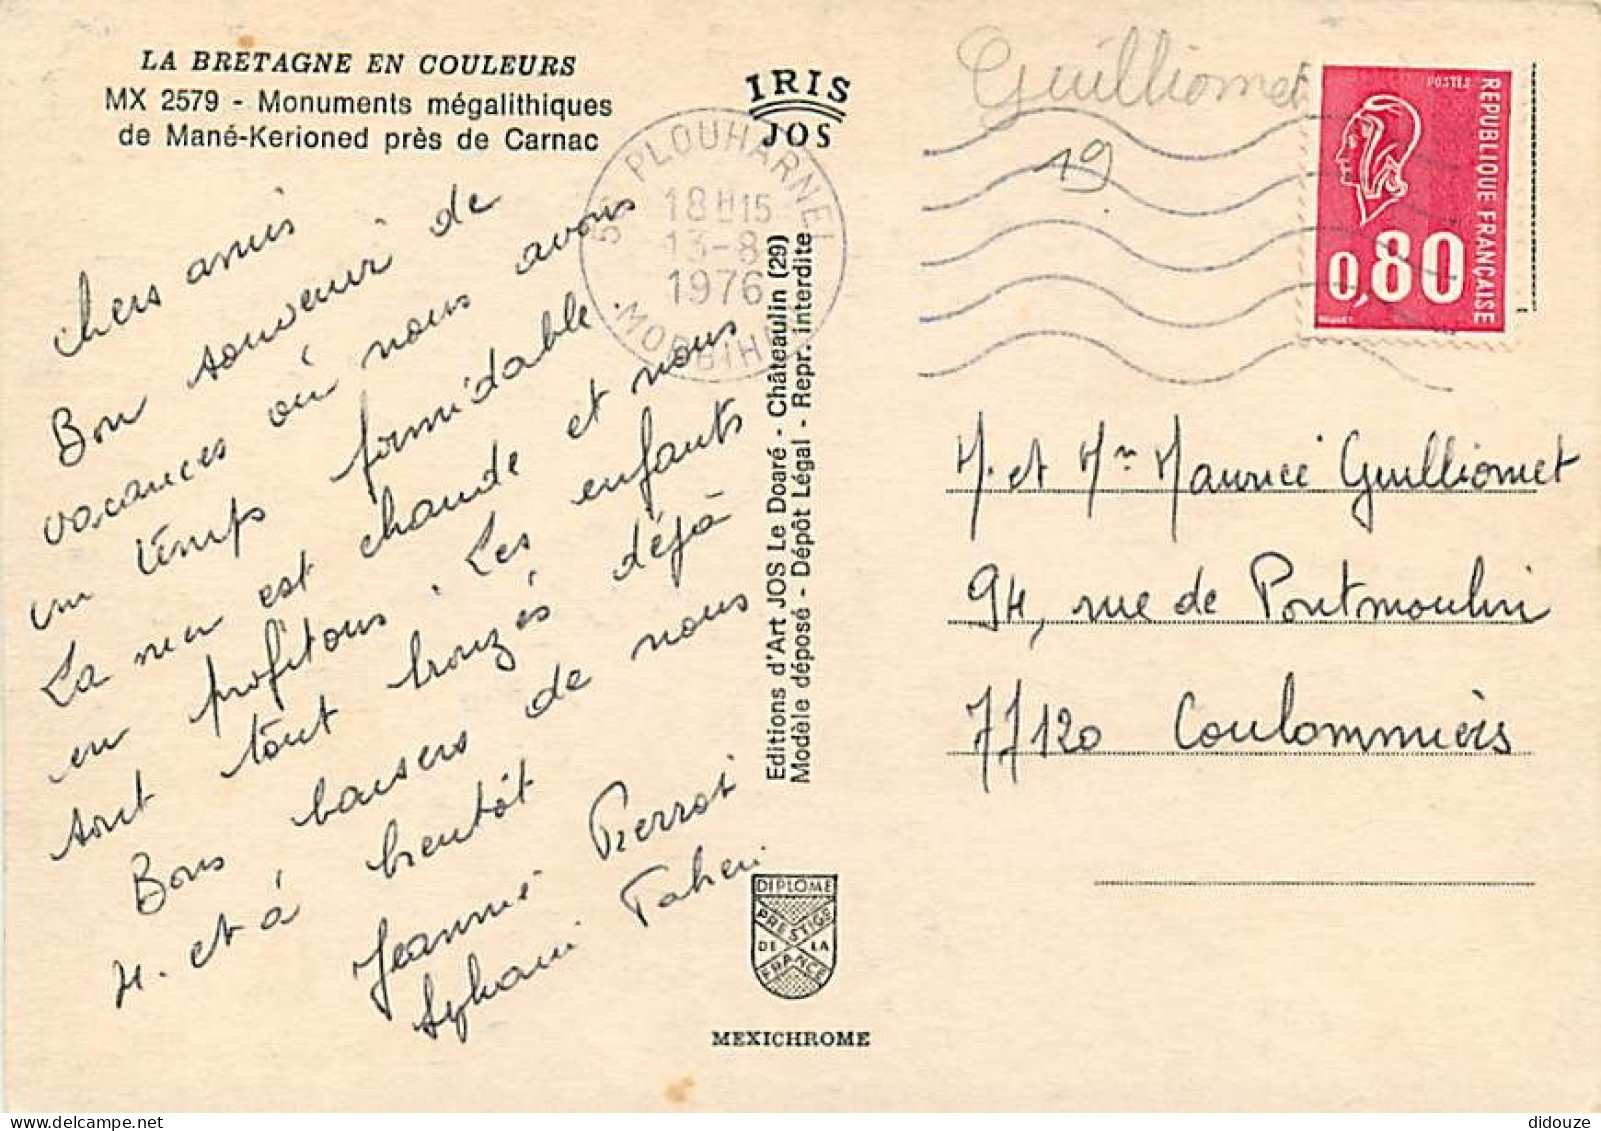 LA BRETAGNE EN COULEURS
MX 2579 - Monuments mégalithiques
de Mané-Kerioned près de Carnac
IRIS
JOS
56 PLOUHARNEL
18H15
13-8
1976
MORBIHAN
Guilliomet
19
POSTES
REPUBLIQUE FRANÇAISE
0,80
chers amis
Bon souvenir de
vacances où nous avons
un temps formidable.
La mer est chaude et nous
en profitons. Les enfants
sont tout bronzés déjà
Bons baisers de nous
4. et à bientôt
Jeannie Pierrot
Editions d'Art JOS Le Doaré - Châteaulin (29)
Modèle déposé - Dépôt Légal - Repr. interdite
M. et Mme Maurice Guilliomet
94, rue de Pontmoulin
77120 Coulommiers
DIPLOME
PRESTIGE
DE LA
FRANCE
MEXICHROME
didouze @ delcampe.net